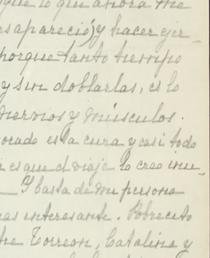 que lo que ahora me
esapareció; y hacer ejer-
porque tanto tiempo
y sin doblarlas, es lo
nervios y músculos.
orado esta cura y casi todo
es que el viaje lo creo inu-
Y basta de mi persona
as interesante. Pobrecito
he Torreon, Catalina y